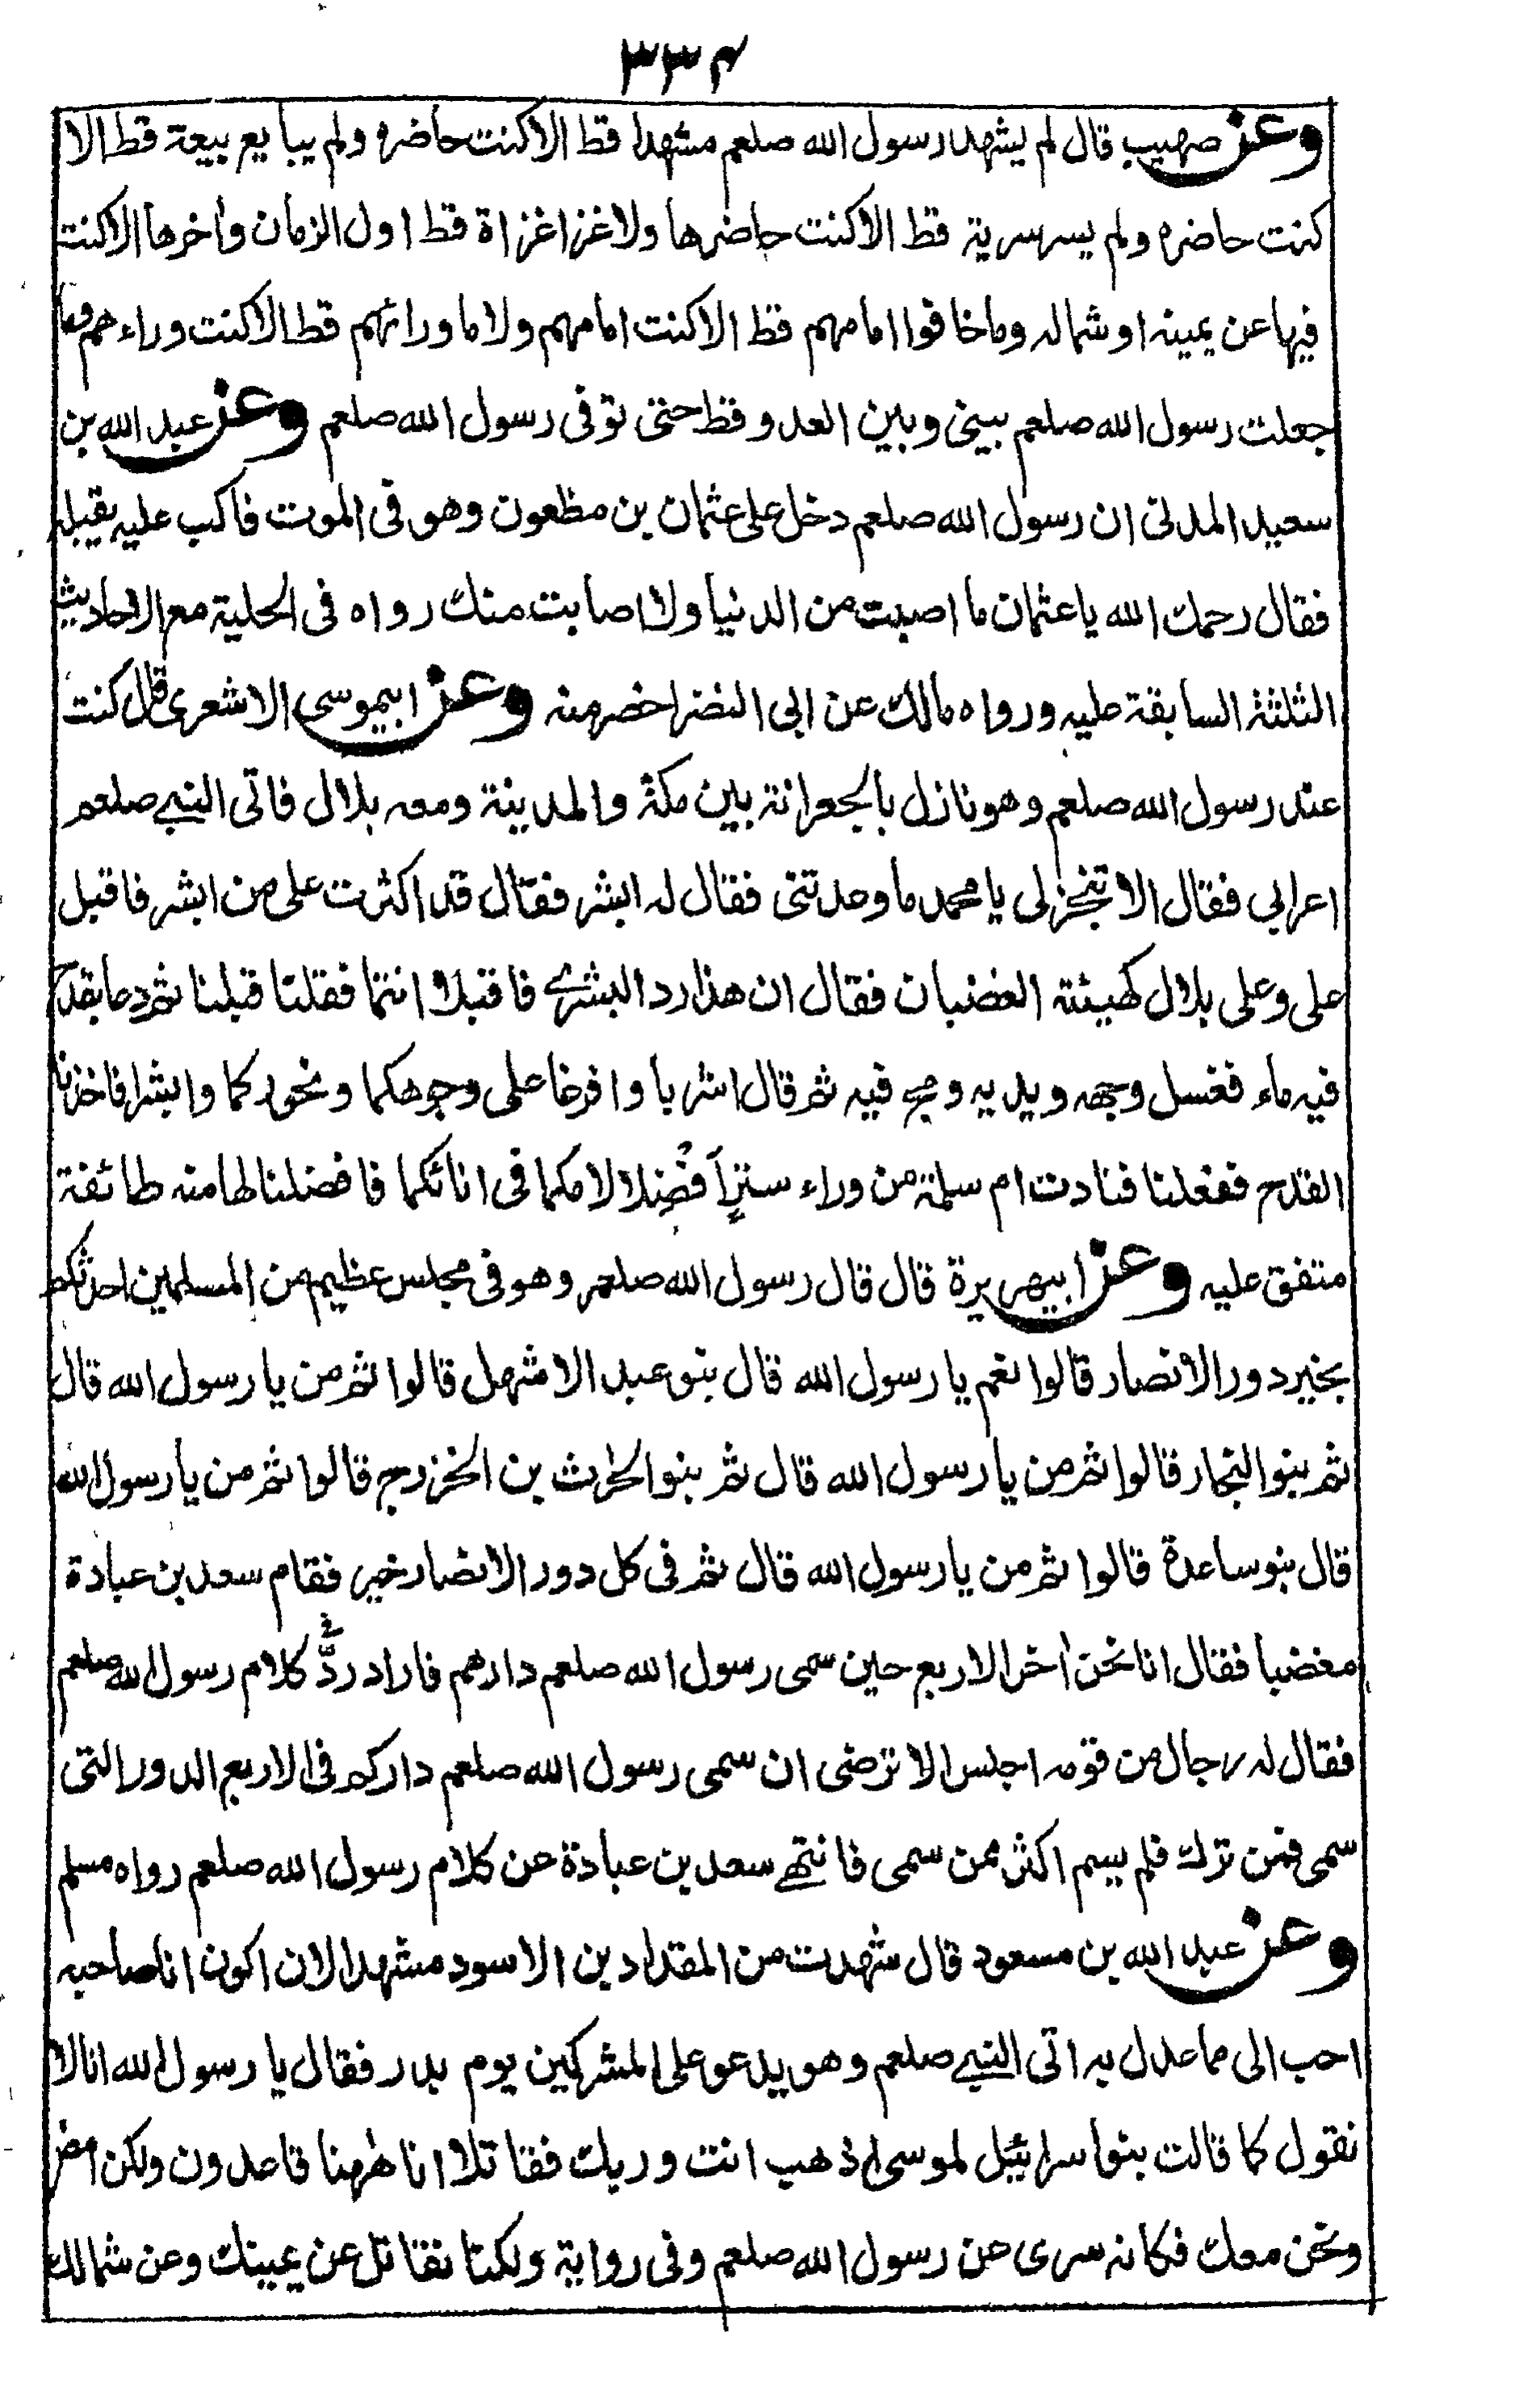 ٣٣٤
وعن صهيب قال لم يشهد رسول الله صلعم مشهدا قط الا كنت حاضره ولم يبايع بيعة قط الا
كنت حاضره ولم يسر سرية قط الا كنت حاضرها ولا غزا غزاة قط اول الزمان وأخرها الا كنت
فيها عن يمينه او شماله وما خافوا امامهم قط الا كنت امامهم ولا ما ورائهم قط الا كنت وراءهم وما
جعلت رسول الله صلعم بيني وبين العدو قط حتى توفى رسول الله صلعم وعن عبد الله بن
سعيد المدنى ان رسول الله صلعم دخل على عثمان بن مظعون وهو فى الموت فاكب عليه يقبله
فقال رحمك الله يا عثمان ما اصبت من الدنيا ولا اصابت منك رواه فى الحلية مع الاحاديث
الثلثة السابقة عليه ورواه مالك عن ابى النضر اخصر منه وعن ابيموسى الاشعرى قال كنت
عند رسول الله صلعم وهو نازل بالجعرانة بين مكة والمدينة ومعه بلال فاتى النبى صلعم
اعرابى فقال الا تنجز لى يا محمد ما وعدتنى فقال له ابشر فقال قد اكثرت على من ابشر فاقبل
على وعلى بلال كهيئة الغضبان فقال ان هذا رد البشرى فاقبلا انتما فقلنا قبلنا ثم دعا بقدح
فيه ماء فغسل وجهه ويديه ومج فيه ثم قال اشربا وافرغا على وجوهكما ونحوركما وابشرا فاخذنا
القدح ففعلنا فنادت ام سلمة من وراء ستر أفضلا لامكما فى انائكما فافضلنا لها منه طائفة
متفق عليه وعن ابيهريرة قال قال رسول الله صلعم وهو فى مجلس عظيم من المسلمين احدثكم
بخير دور الانصار قالوا نعم يا رسول الله قال بنو عبد الاشهل قالوا ثم من يا رسول الله قال
ثم بنو النجار قالوا ثم من يا رسول الله قال ثم بنو الحارث بن الخزرج قالوا ثم من يا رسول الله
قال بنو ساعدة قالوا ثم من يا رسول الله قال ثم فى كل دور الانصار خير فقام سعد بن عبادة
مغضبا فقال انا نحن أخر الاربع حين سمى رسول الله صلعم دارهم فاراد ردّ كلام رسول الله صلعم
فقال له رجال من قومه اجلس الا ترضى ان سمى رسول الله صلعم داركم فى الاربع الدور التى
سمى فمن ترك فلم يسم اكثر ممن سمى فانتهى سعد بن عبادة عن كلام رسول الله صلعم رواه مسلم
وعن عبد الله بن مسعود قال شهدت من المقداد بن الاسود مشهدا لان اكون انا صاحبه
احب الى مما عدل به اتى النبى صلعم وهو يدعو على المشركين يوم بدر فقال يا رسول الله انا لا
نقول كما قالت بنو اسرائيل لموسى اذهب انت وربك فقاتلا انا ههنا قاعدون ولكن امض
ونحن معك فكانه سرى عن رسول الله صلعم وفى رواية ولكنا نقاتل عن يمينك وعن شمالك